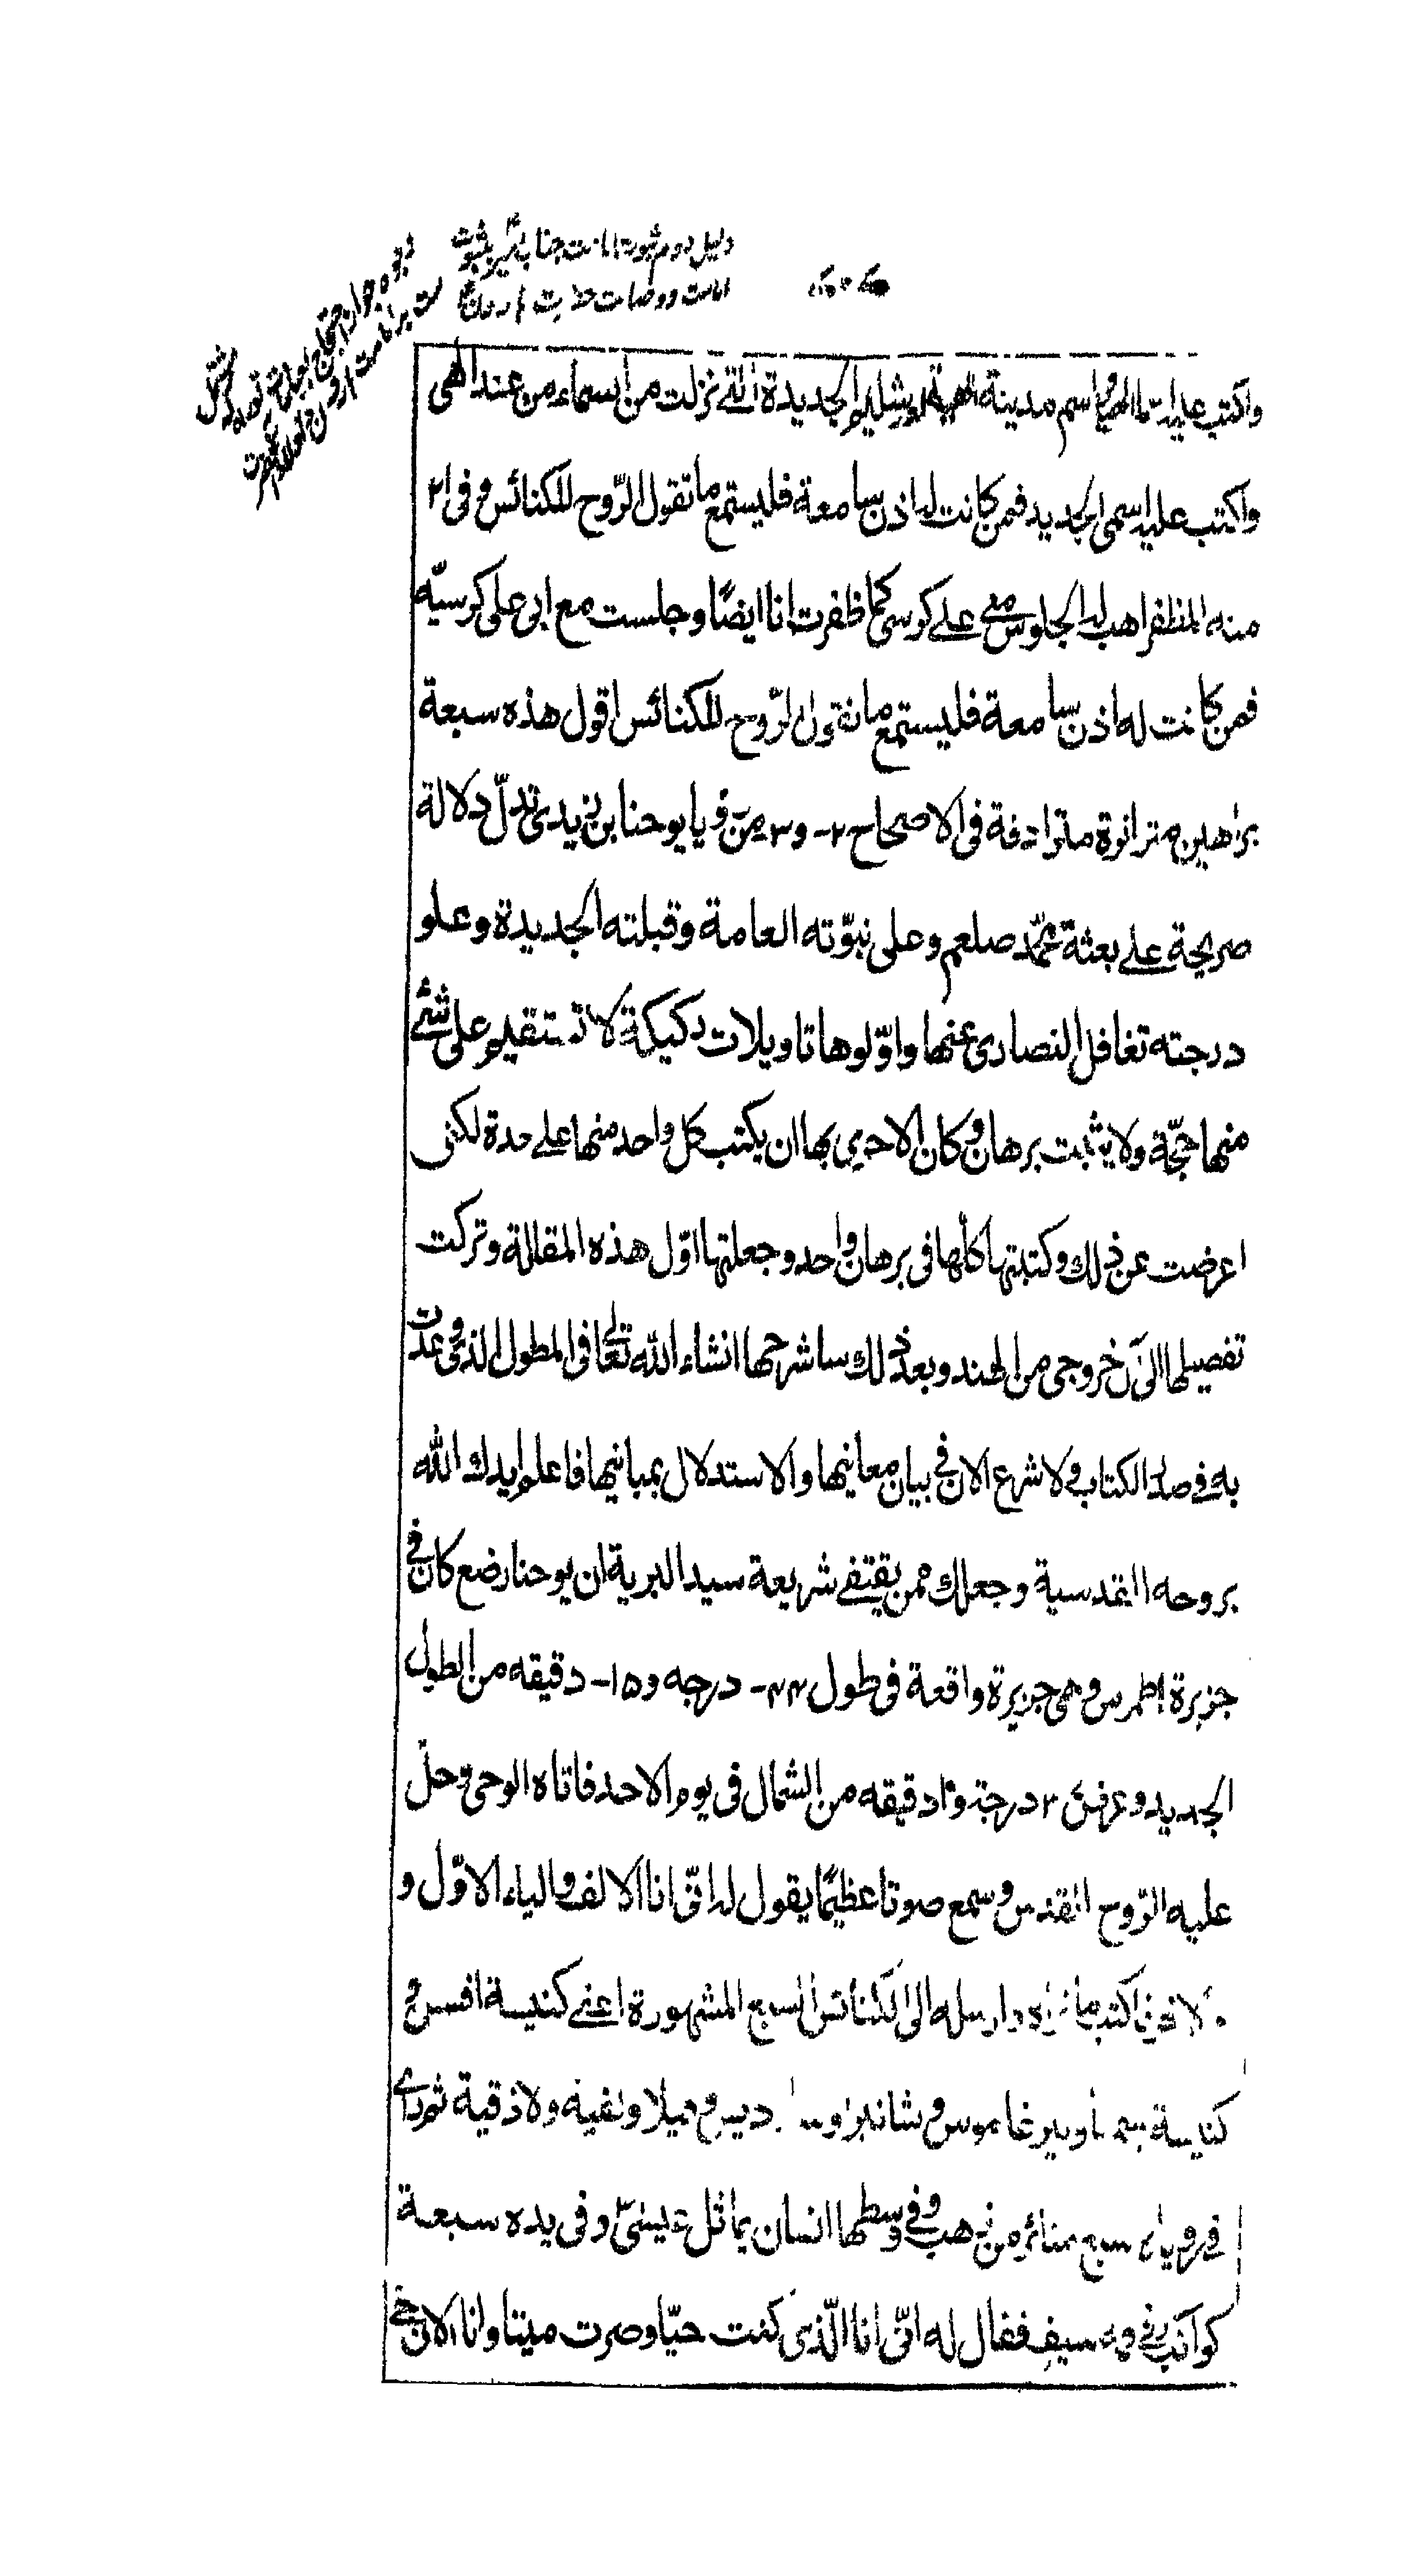 دليل دوم ثبوت امامت جناب امير بثبوت
واكتب عليه اسم الهى واسم مدينة الهى اورشليم الجديدة التى نزلت من السماء من عند الهى
واكتب عليه اسمى الجديد فمن كانت له اذن سامعة فليستمع ما تقول الرّوح للكنائس وفى ٢١
منه المظفر اهب له الجلوس معى على كرسى كما ظفرت انا ايضًا وجلست مع ابى على كرسيّه
فمن كانت له اذن سامعة فليستمع ما تقول الرّوح للكنائس اقول هذه سبعة
براهين متواترة مترادفة فى الاصحاح ٢- و٣ من رؤيا يوحنا بن زيدى تدلّ دلالة
صريحة على بعثة محمّد صلعم وعلى نبوّته العامة وقبلته الجديدة وعلو
درجته تغافل النصارى عنها واوّلوها تاويلات ركيكة لا تستقيم على شئ
منها حجّة ولا يثبت برهان وكان الاحرى بها ان يكتب كل واحد منها على حدة لكنى
اعرضت عن ذلك وكتبتها كلّها فى برهان واحد وجعلتها اوّل هذه المقالة وتركت
تفصيلها الى خروجى من الهند وبعد ذلك ساشرحها انشاء الله تعالى فى المطول الذى وعدت
به فى صدر الكتاب ولاشرع الان فى بيان معانيها والاستدلال بمبانيها فاعلم ايدك الله
بروحه القدسية وجعلك ممن يقتفى شريعة سيد البرية ان يوحنا رضع كان فى
جزيرة بطمرس وهى جزيرة واقعة فى طول ٤٤- درجه و١٥- دقيقه من الطول
الجديد وعرض درجة و دقيقه من الشمال فى يوم الاحد فاتاه الوحى وحلّ
عليه الرّوح القدس وسمع صوتا عظيمًا يقول له انّى انا الالف والياء الاوّل و
الاخر فاكتب ما تراه وارسله الى الكنائس السبع المشهورة اعنى كنيسة افسس و
كنيسة وبيرغاموس وفيلا ولاذقية ثم راى
فى رؤياه سبع منائر من ذهب وفى وسطها انسان يماثل عيسىٰ وفى يده سبعة
كواكب وفى فيه سيف فقال له انّى انا الّذى كنت حيّا وصرت ميتا وانا الان حى